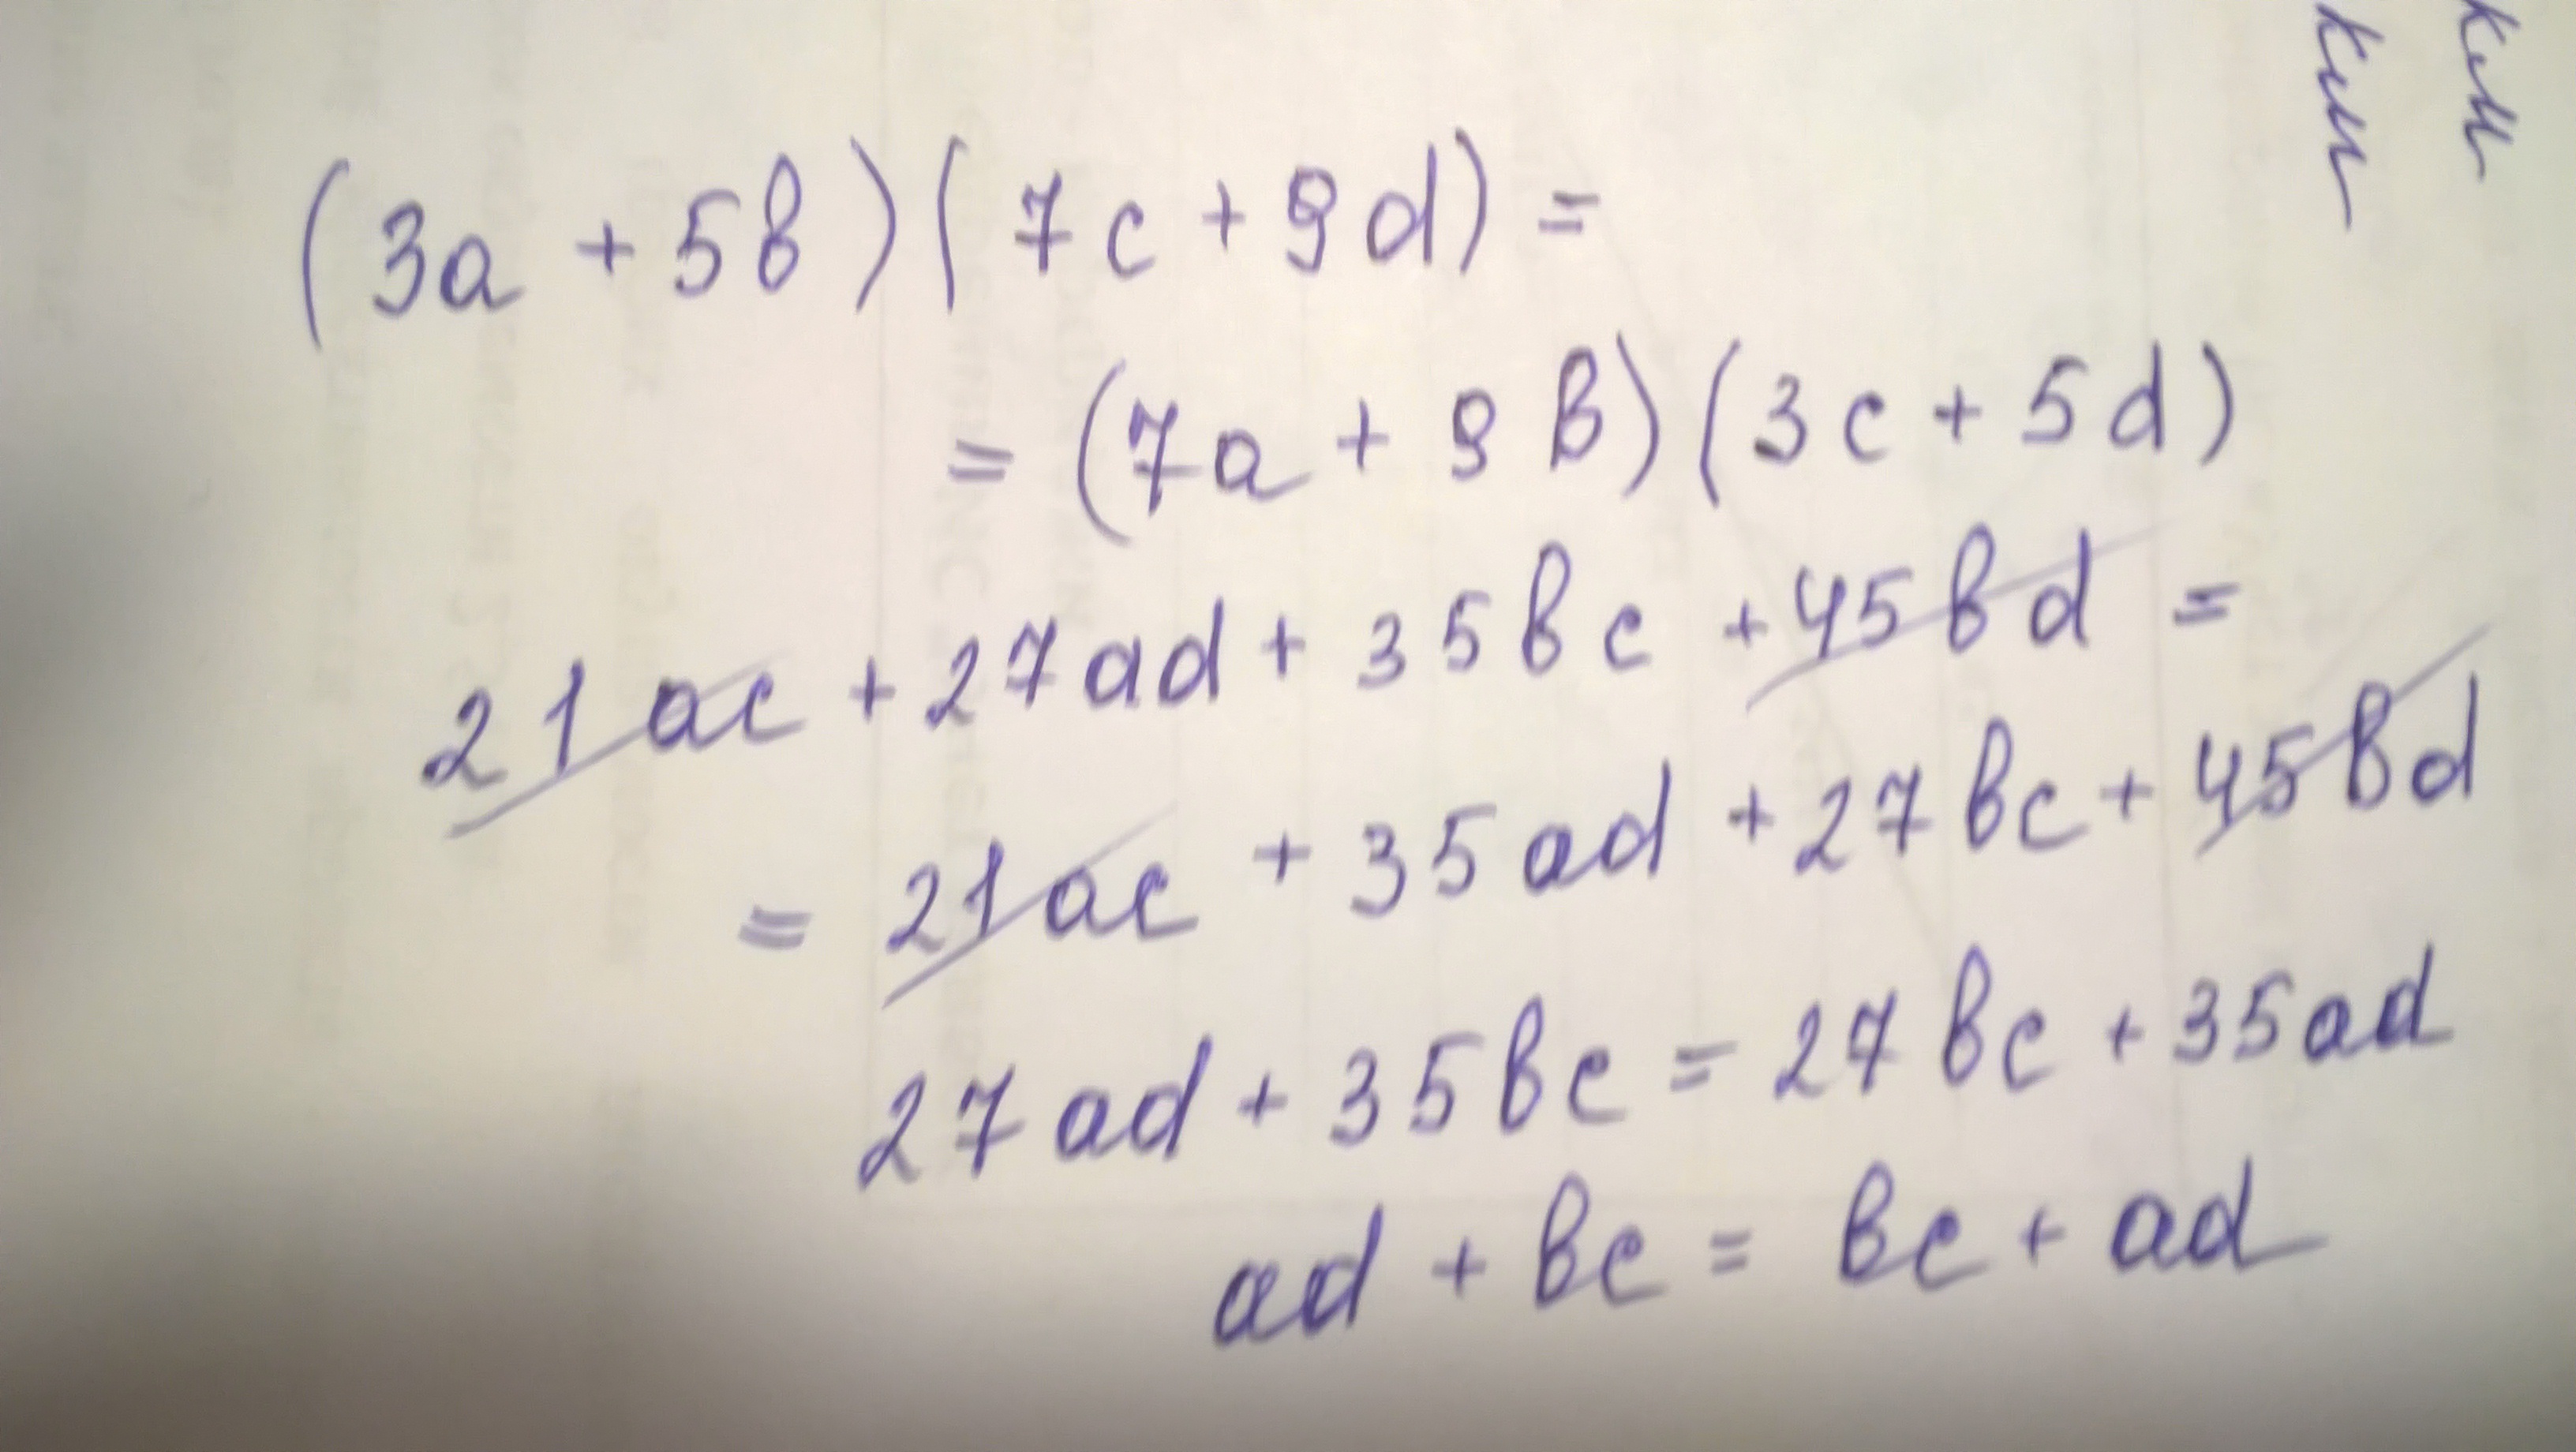 (3a + 5в)(7c + 9d) =
= (7a + 9в)(3c + 5d)
21ac + 27ad + 35вc + 45вd =
= 21ac + 35ad + 27вc + 45вd
27ad + 35вc = 27вc + 35ad
ad + вc = вc + ad
км
км